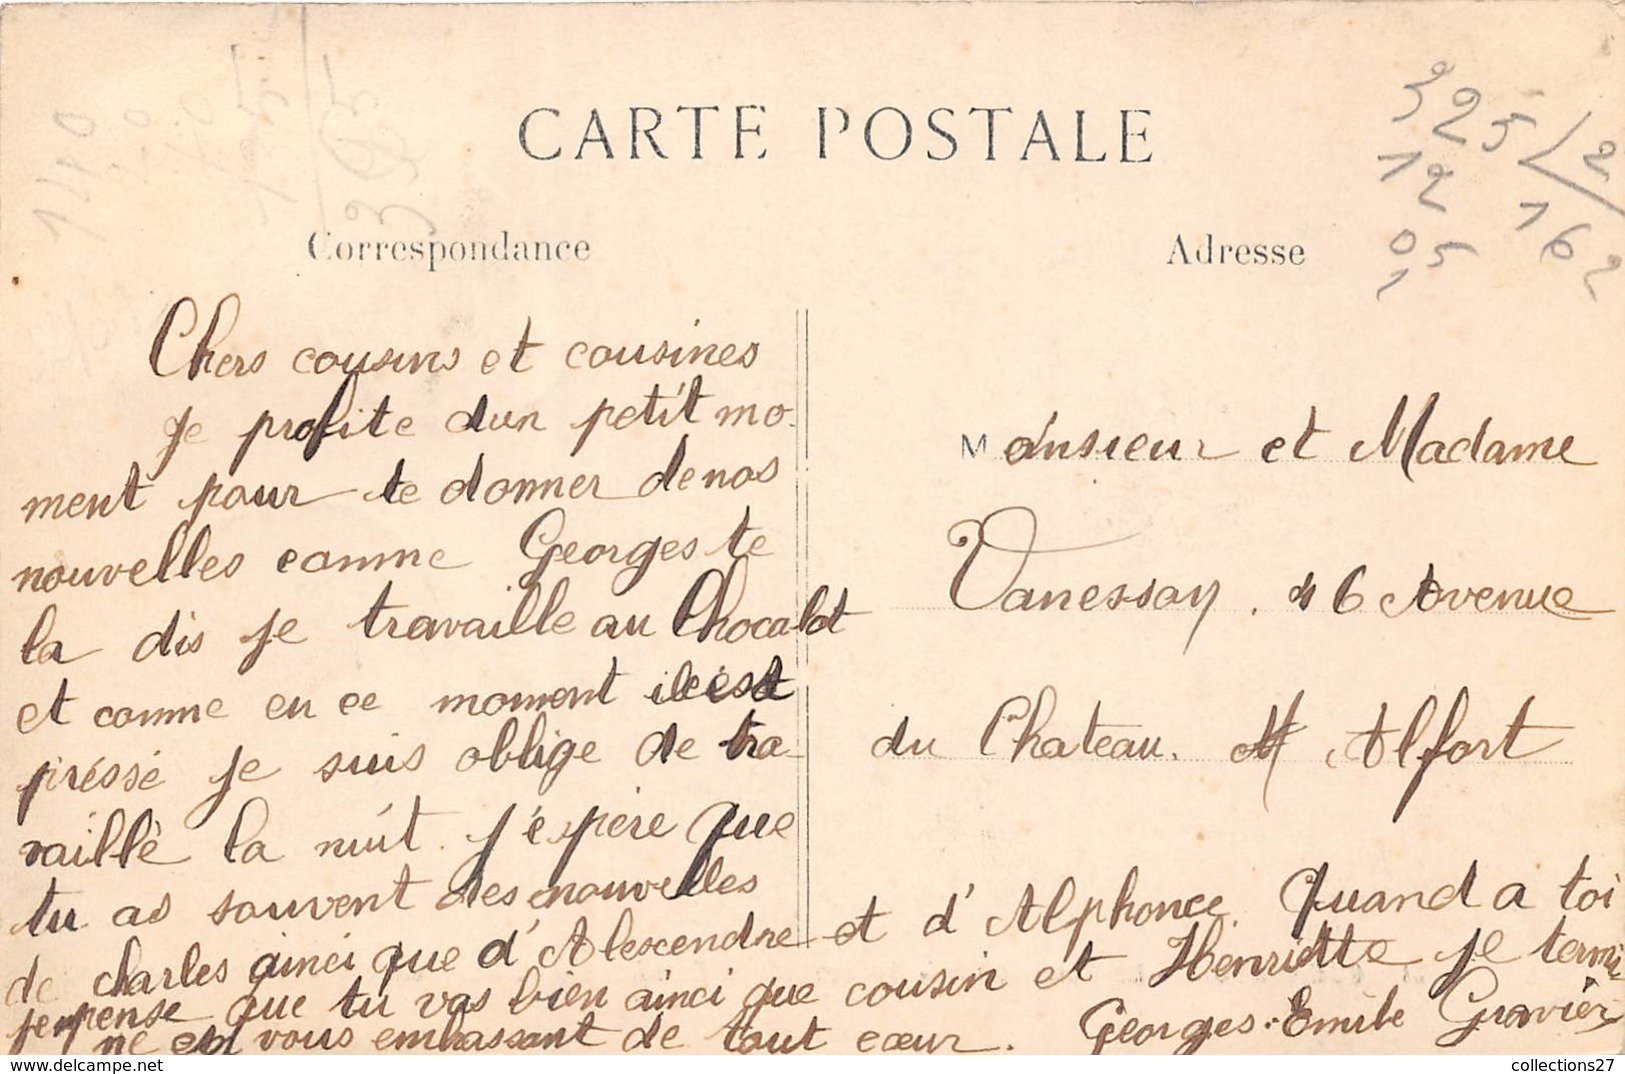 CARTE POSTALE
Correspondance
Adresse
325 / 2
12 162
05
1
Chers cousins et cousines
je profite dun petit mo-
ment pour te donner de nos
nouvelles comme Georges te
la dis je travaille au Chocolat
et comme en ce moment il est
préssé je suis oblige de tra-
vaillé la nuit. j'éspère que
tu as souvent des nouvelles
de charles ainci que d'Alescendre et d'Alphonce. Quand a toi
je pense que tu vas bien ainci que cousin et Henriette je termi
ne en vous embassant de tout cœur. Georges-Emile Gravier
Monsieur et Madame
Vanessay. 46 Avenue
du Chateau. M Alfort
www.delcampe.net
collections27